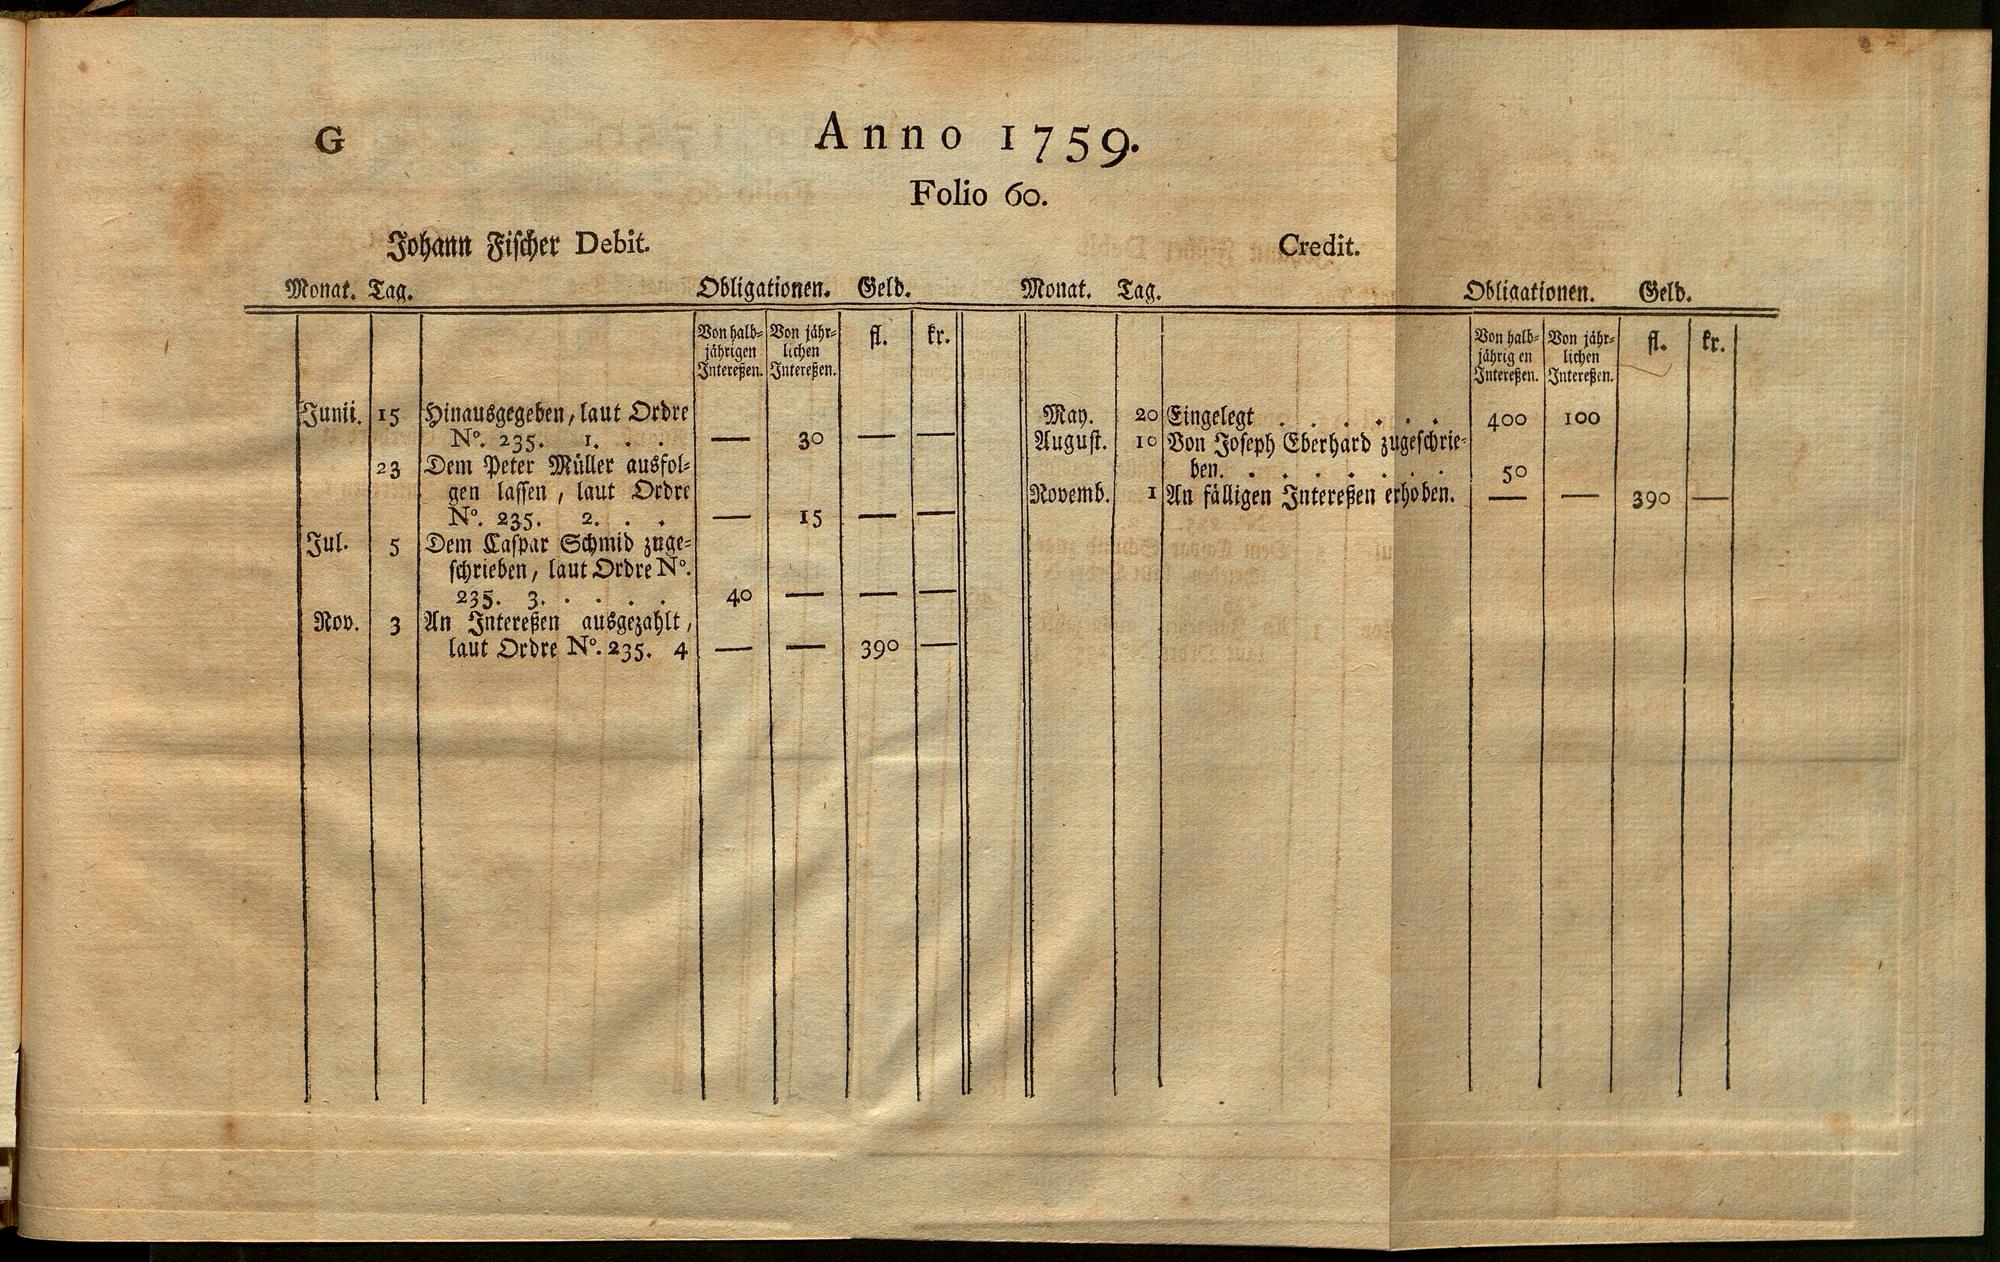 G
Anno 1759.
Folio 60.
Johann Fischer Debit.
Monat. Tag. Obligationen. Geld.
Von halb= Von jähr= fl. kr.
jährigen lichen
Intereßen. Intereßen.
Junii. 15 Hinausgegeben, laut Ordre
No. 235. 1. . . — 30 — —
23 Dem Peter Müller ausfol=
gen lassen, laut Ordre
No. 235. 2. . . — 15 — —
Jul. 5 Dem Caspar Schmid zuge=
schrieben, laut Ordre No.
235. 3. . . . . 40 — — —
Nov. 3 An Intereßen ausgezahlt,
laut Ordre No. 235. 4 — — 390 —
Credit.
Monat. Tag. Obligationen. Geld.
Von halb= Von jähr= fl. kr.
jährig en lichen
Intereßen. Intereßen.
May. 20 Eingelegt . . . . . . 400 100
August. 10 Von Joseph Eberhard zugeschrie=
ben. . . . . . . . 50
Novemb. 1 An fälligen Intereßen erhoben. — — 390 —